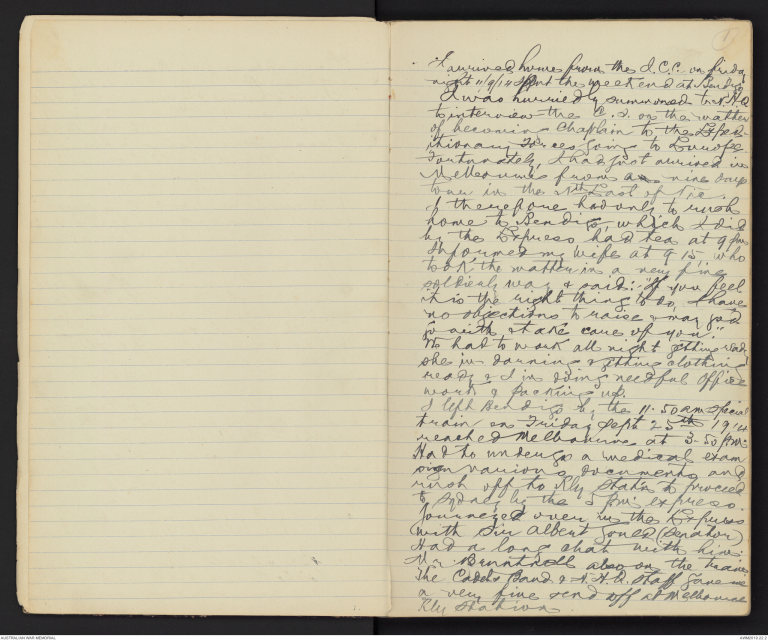 1
I arrived home from the I.C.C. on friday
night 11/9/14 spent the week end at Bendigo
I was hurriedly summoned to N.H.Q
to interview the C.S. on the matter
of becoming Chaplain to the Exped-
itionary Forces going to Europe.
Fortunately, I had just arrived in
Melbourne from a nine days
tour in the Nth East of Vic.
I therefore had only to rush
home to Bendigo, which I did
by the Express had tea at 9 pm
Informed my wife at 9.15, who
took the matter in a very fine
soldierly way & said: "If you feel
it is the right thing to do, I have
no objections to raise & may God
go with & take care of you."
We had to work all night getting ready
she in darning & getting clothing
ready & I in doing needful Office
work & packing up.
I left Bendigo by the 11.50 am special
train on Friday Sept 25th 1914
reached Melbourne at 3.50 p.m.
Had to undergo a medical exam
sign various documents and
rush off to Rly Statn to proceed
to Sydney by the 5 pm express.
Journeyed over in the Express
with Sir Albert Gould (Senator)
Had a long chat with him.
Mr also on the train
The Cadets Band & N.H.Q. Staff gave me
a very fine send off at Melbourne
Rly Station
AUSTRALIAN WAR MEMORIAL
AWM2019.22.2